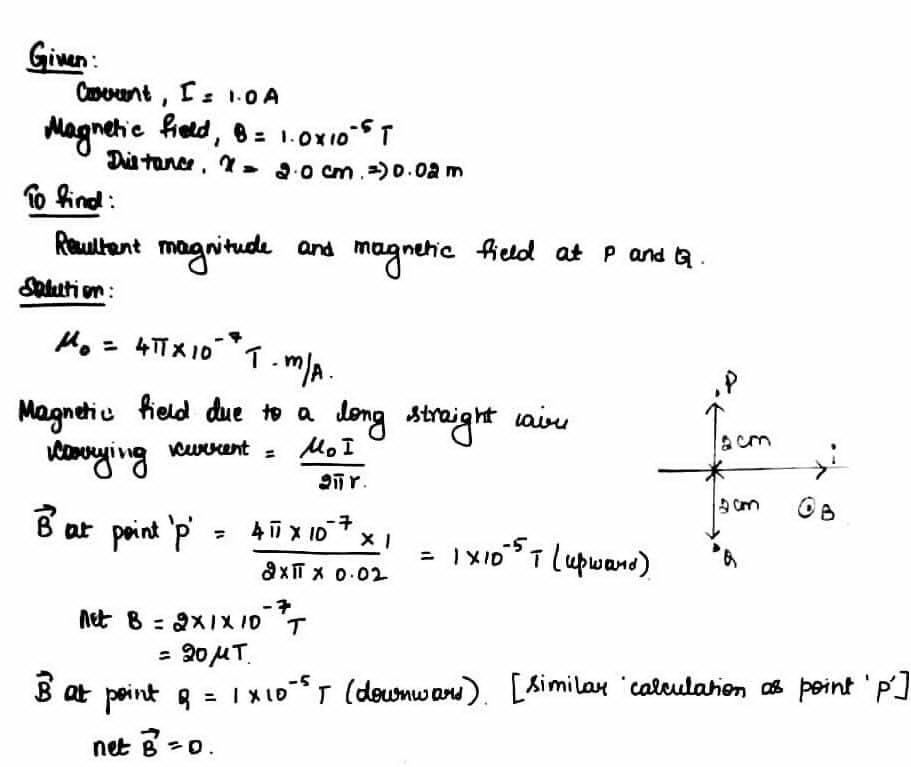 Given:
Current, I = 1.0 A
Magnetic field, B = 1.0×10⁻⁵ T
Distance, x = 2.0 cm. ⇒ 0.02 m
To find:
Resultant magnitude and magnetic field at P and Q.
Solution:
μ₀ = 4π×10⁻⁷ T·m/A.
Magnetic field due to a long straight wire
carrying current = μ₀I / 2πr.
B⃗ at point 'p' = 4π × 10⁻⁷ × 1 / 2×π × 0.02 = 1×10⁻⁵ T (upward)
net B = 2×1×10⁻⁷ T
= 20 μT.
B⃗ at point Q = 1×10⁻⁵ T (downward). [similar calculation as point 'p']
net B⃗ = 0.
P
2cm
i
2cm
⊙B
Q